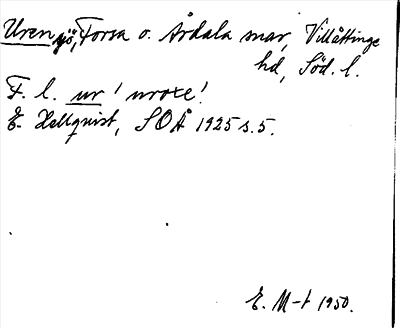 Uren sjö, Forsa o. Årdala snar, Villåttinge
hd, Söd. l.
F. l. ur ! uroxe!
E. Hellquist, SOÅ 1925 s. 5.
E. M-t 1950.